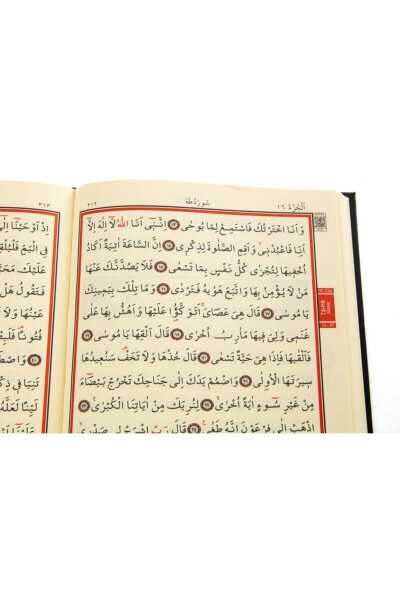 اَلْجُزْءُ ١٦
سُورَةُ طٰهٰ
٣١٢
وَاَنَا اخْتَرْتُكَ فَاسْتَمِعْ لِمَا يُوحٰى ﴿١٣﴾ اِنَّنٖٓي اَنَا اللّٰهُ لَٓا اِلٰهَ اِلَّٓا
اَنَا۬ فَاعْبُدْنٖيۙ وَاَقِمِ الصَّلٰوةَ لِذِكْرٖي ﴿١٤﴾ اِنَّ السَّاعَةَ اٰتِيَةٌ اَكَادُ
اُخْفٖيهَا لِتُجْزٰى كُلُّ نَفْسٍ بِمَا تَسْعٰى ﴿١٥﴾ فَلَا يَصُدَّنَّكَ عَنْهَا
مَنْ لَا يُؤْمِنُ بِهَا وَاتَّبَعَ هَوٰيهُ فَتَرْدٰى ﴿١٦﴾ وَمَا تِلْكَ بِيَمٖينِكَ
يَا مُوسٰى ﴿١٧﴾ قَالَ هِيَ عَصَايَۚ اَتَوَكَّؤُ۬ا عَلَيْهَا وَاَهُشُّ بِهَا عَلٰى
غَنَمٖي وَلِيَ فٖيهَا مَاٰرِبُ اُخْرٰى ﴿١٨﴾ قَالَ اَلْقِهَا يَا مُوسٰى ﴿١٩﴾
فَاَلْقٰيهَا فَاِذَا هِيَ حَيَّةٌ تَسْعٰى ﴿٢٠﴾ قَالَ خُذْهَا وَلَا تَخَفْ۠ سَنُعٖيدُهَا
سٖيرَتَهَا الْاُو۫لٰى ﴿٢١﴾ وَاضْمُمْ يَدَكَ اِلٰى جَنَاحِكَ تَخْرُجْ بَيْضَٓاءَ
مِنْ غَيْرِ سُٓوءٍ اٰيَةً اُخْرٰىۙ ﴿٢٢﴾ لِنُرِيَكَ مِنْ اٰيَاتِنَا الْكُبْرٰىۚ ﴿٢٣﴾
اِذْهَبْ اِلٰى فِرْعَوْنَ اِنَّهُ طَغٰى۟ ﴿٢٤﴾ قَالَ رَبِّ اشْرَحْ لٖي صَدْرٖيۙ
Tâ-Hâ
٣١٣
اِذْ اَوْحَيْنَٓا اِلٰٓى
فِي الْيَمِّ فَلْيُلْقِهِ
عَلَيْكَ
فَتَقُولُ هَلْ
عَيْنُهَا وَلَا
فُتُونًا۠ فَلَبِثْتَ
تَنِيَا فٖي
لَيِّنًا لَعَلَّهُ